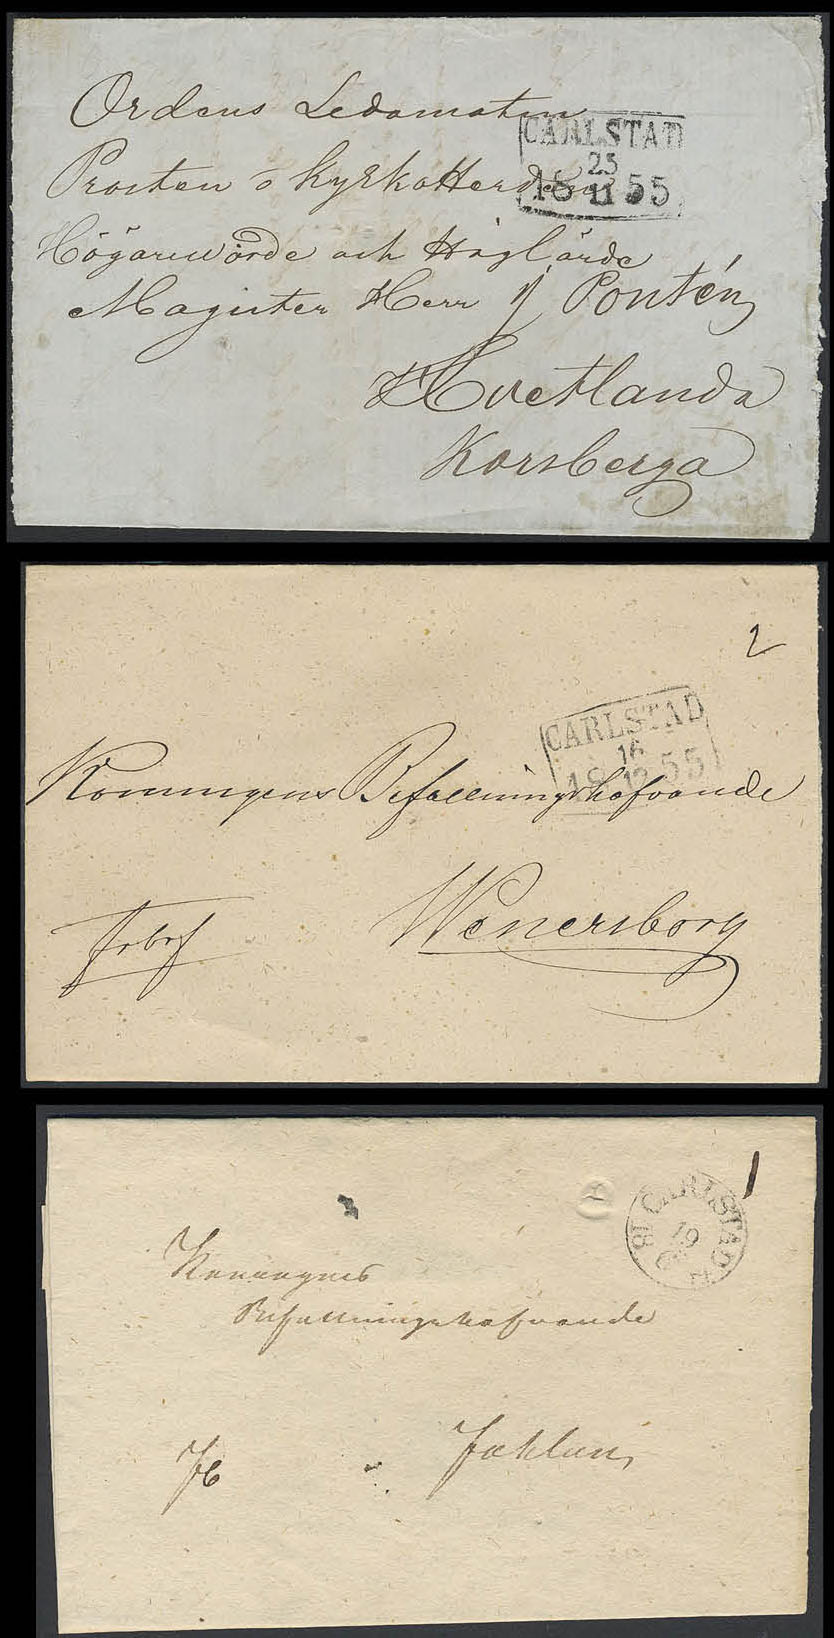 Ordens Ledamoten
CARLSTAD
25
18 11 55
Prosten o Kyrkoherden
Högarewörde och Höglärde
Magister Herr J Pontén
Hvetlanda
Korsberga
2
CARLSTAD
16
18 12 55
Konungens Befallningshafvande
Frbrf
Wenersborg
1
CARLSTAD
19
18
Konungens
Befallningshafvande
Fb
Fahlun